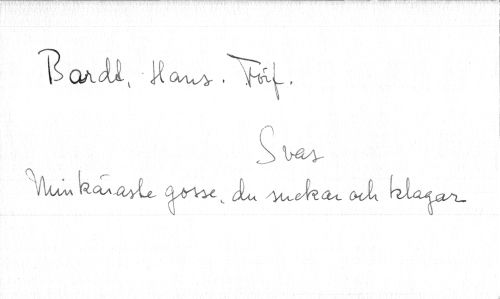 Bardt, Hans. Förf.
Svar
Min käraste gosse, du suckar och klagar